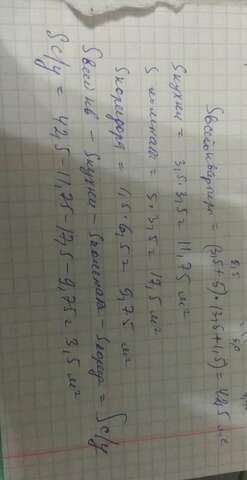 8,5 5,0
Sвсей квартиры = (3,5+5)·(3,5+1,5) = 42,5 м²
Sкухни = 3,5·3,5 = 11,75 м²
Sкомнат = 5·3,5 = 17,5 м²
Sкоридора = 1,5·6,5 = 9,75 м²
Sвсей кв - Sкухни - Sкомната - Sкорид = Sс/у
Sс/у = 42,5-11,75-17,5-9,75 = 3,5 м²